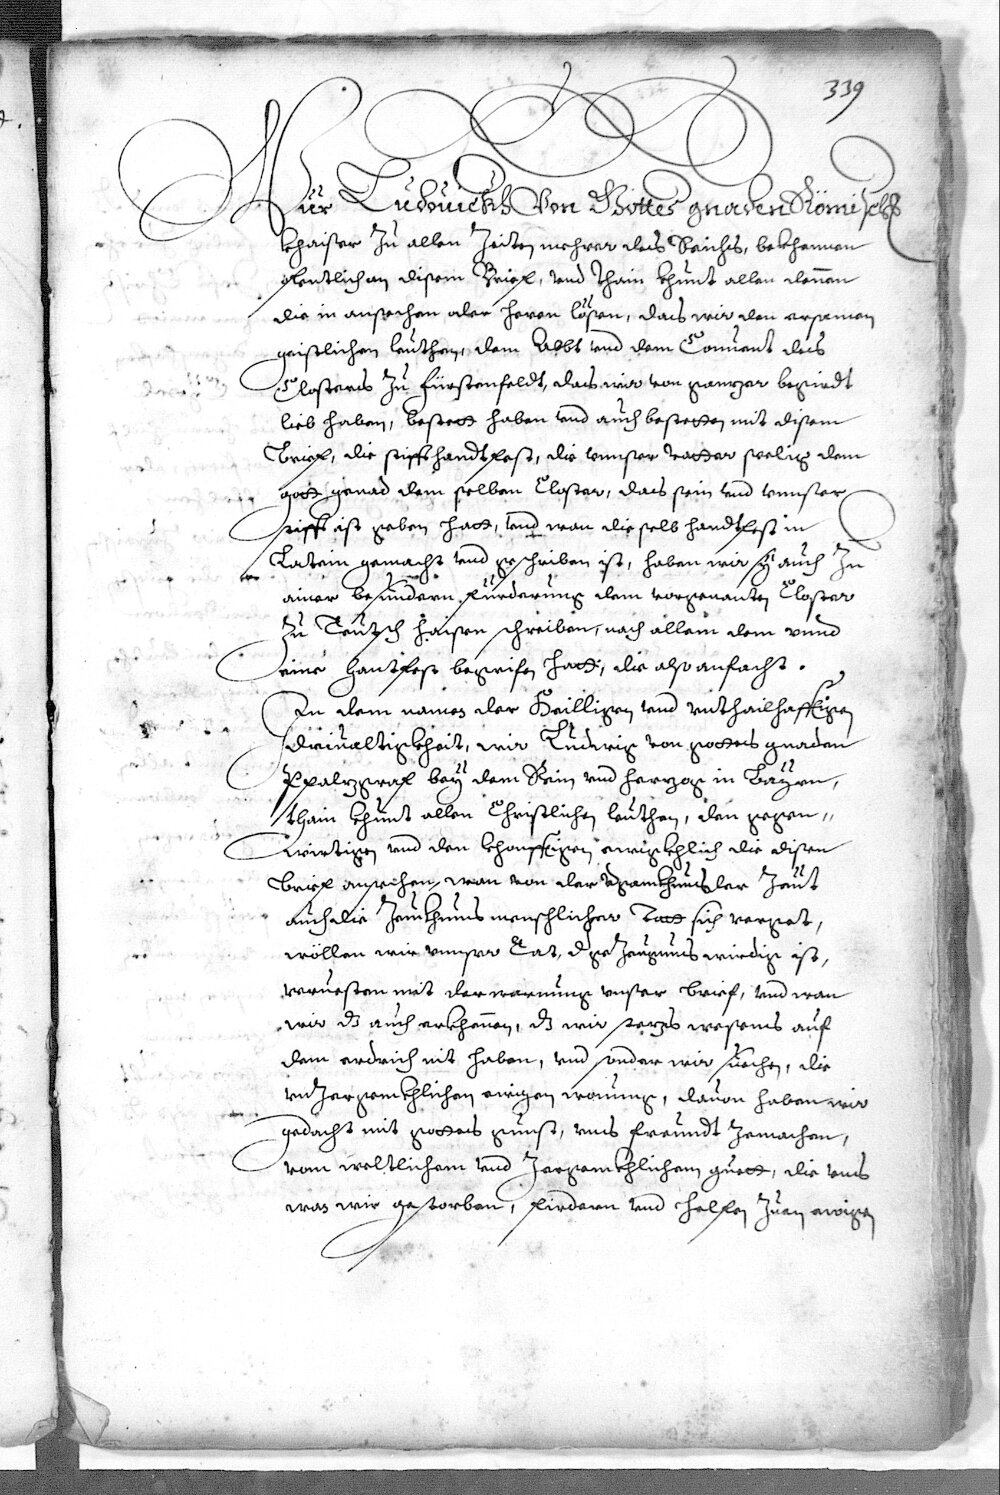 339
Wür Ludouickh Von Gottes gnaden Römischer
Khaiser Zu allen Zeiten mehrer des Reichs, bekhennen
offentlich an disem Brief, vnd thuin khunt allen dennen
die in ansechen oder heren lösen, das wir den ersamen
geistlichen leuthen, dem Abbt vnd dem Conuent des
Closters Zu fürstenfeldt, das wir von ganzer begirdt
lieb haben, bestett haben vnd auch bestetten mit disem
Brief, die stiffthandtfest, die vnnser vatter seelig dem
gott genad dem selben Closter, das sein vnd vnnser
stifft ist geben hatt, vnd wan die selb handtfest in
Latein gemacht vnd geschriben ist, haben wir sy auch Zu
ainer besundern fürderung dem vorgenanten Closter
Zu Teutsch haisen schreiben, nach allem dem vnnd
seine hantfest begreifen hatt, die also anfacht.
In dem namen der Heilligen vnd vnthailhafftigen
driualtigkheit, wir Ludwig von gottes gnaden
Pfalzgraf bey dem Rein vnd herzog in Bayrn,
thuin khunt allen Christlichen leuthen, den gegen„
wirtigen vnd den khonfftigen ewigkhlich die disen
brief ansechen, wan von der Zeut
auch die menschlicher Tatt sich verget,
wöllen wir vnnser Tat, d gezeugnus wirdig ist,
veruesten mit der warnung vnser brief, vnd wan
wir dz auch erkhennen, dz wir stets wesens auf
dem erdrich nit haben, vnd sonder wir suechen, die
vnzergenkhlichen ewigen wonung, dauon haben wir
gedacht mit gottes gunst, vns freundt Zemachen,
vom weltlichem vnd Zergenkhlichem guett, die vns
wan wir gestorben, firdern vnd helfen Zu en ewigen